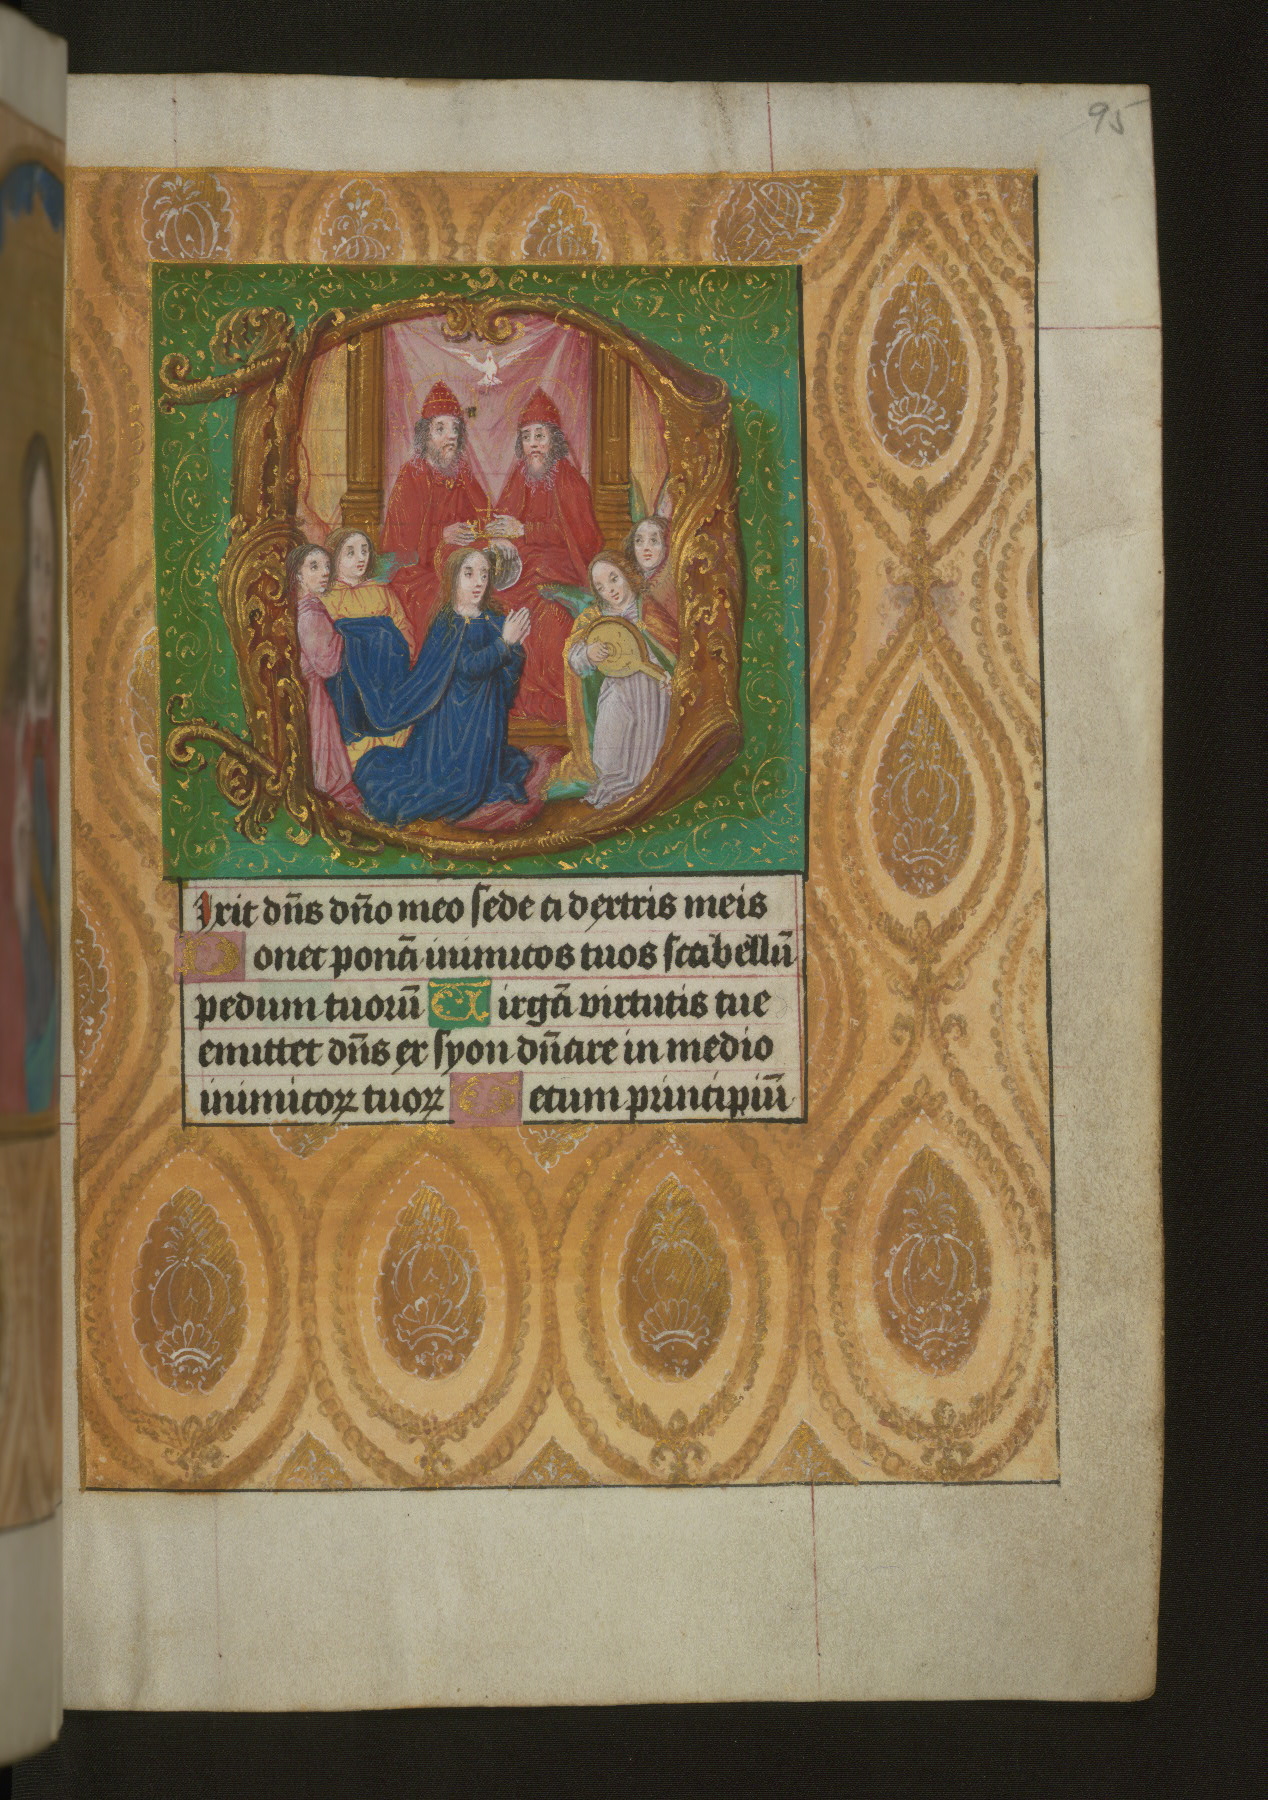 95
D
Ixit dn̄s dn̄o meo sede a dextris meis
Donec ponā inimicos tuos scabellū
pedum tuorū Virgā virtutis tue
emittet dn̄s ex syon dn̄are in medio
inimicoꝝ tuoꝝ Tecum principiū